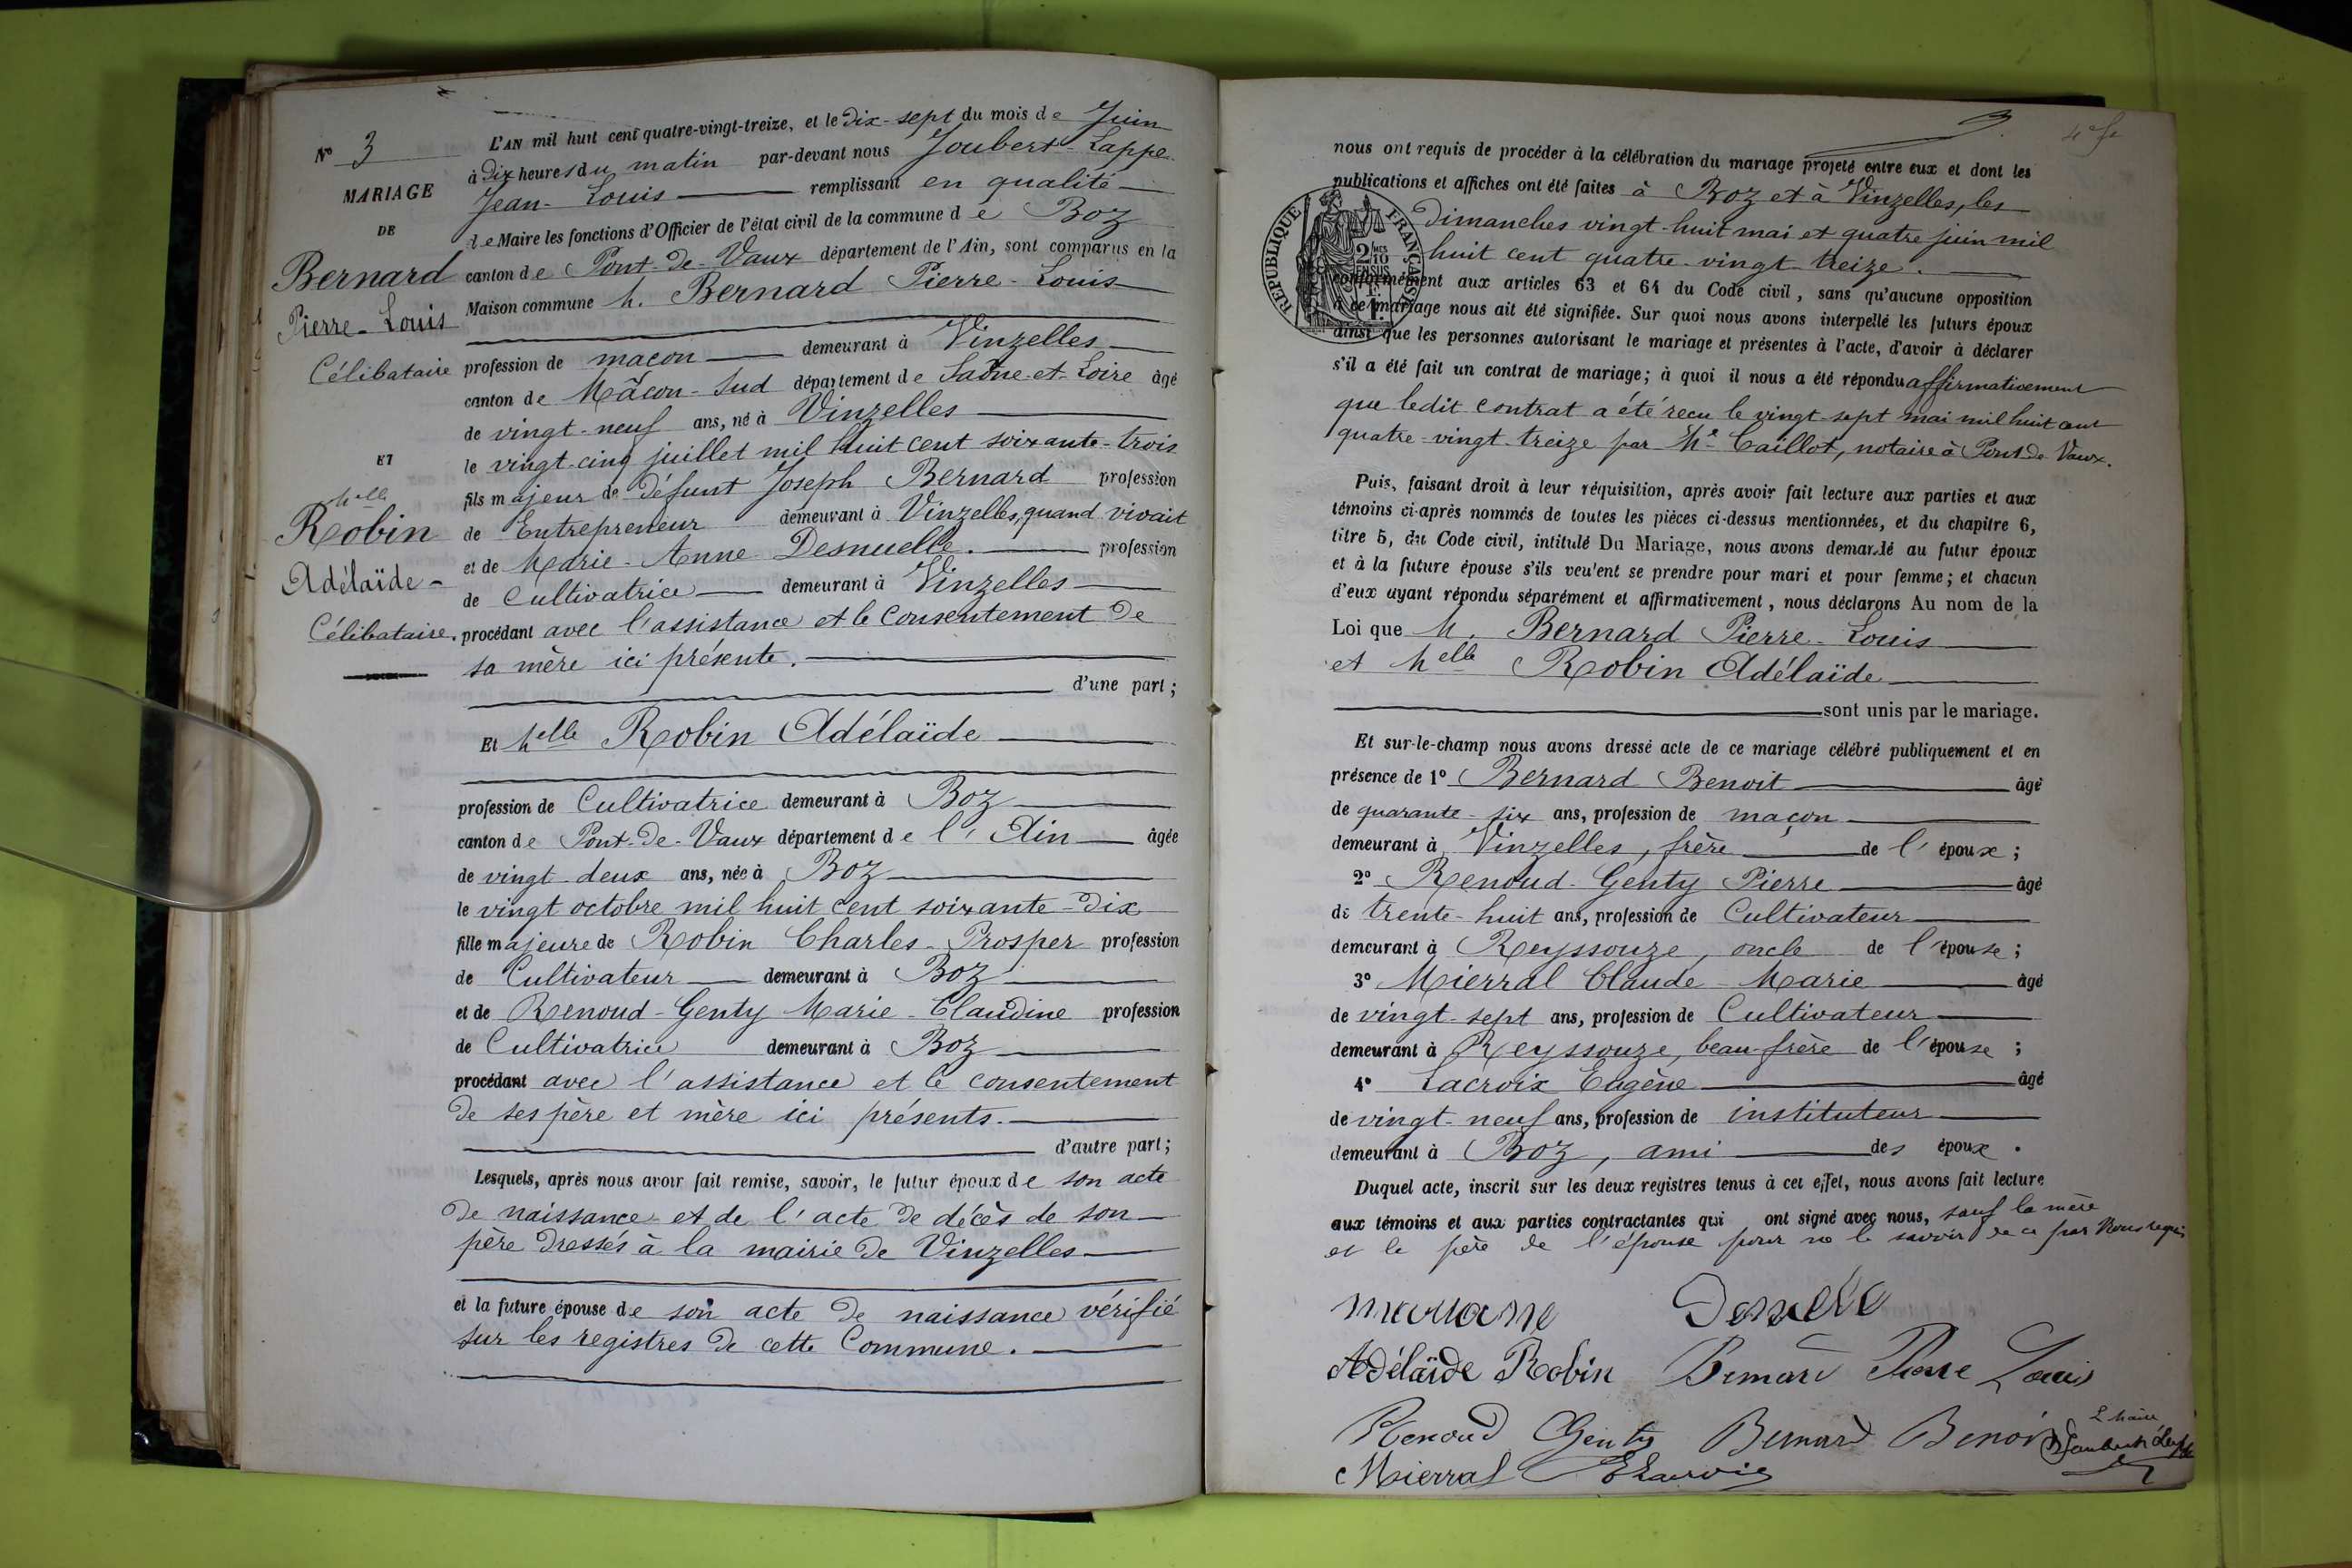 N° 3
MARIAGE
DE
Bernard
Pierre-Louis
Célibataire
ET
Melle
Robin
Adélaïde
Célibataire.
L'AN mil huit cent quatre-vingt-treize, et le dix-sept du mois de Juin
à dix heures du matin par-devant nous Joubert-Lappe
Jean-Louis remplissant en qualité
de Maire les fonctions d'Officier de l'état civil de la commune de Boz
canton de Pont-de-Vaux département de l'Ain, sont comparus en la
Maison commune M. Bernard Pierre-Louis
profession de maçon demeurant à Vinzelles
canton de Mâcon-Sud département de Saône-et-Loire âgé
de vingt-neuf ans, né à Vinzelles
le vingt-cinq juillet mil huit cent soixante-trois
fils majeur de défunt Joseph Bernard profession
de Entrepreneur demeurant à Vinzelles, quand vivait
et de Marie-Anne Desnuelle. profession
de Cultivatrice demeurant à Vinzelles
procédant avec l'assistance et le consentement de
sa mère ici présente.
d'une part;
Et Melle Robin Adélaïde
profession de Cultivatrice demeurant à Boz
canton de Pont-de-Vaux département de l'Ain âgée
de vingt-deux ans, née à Boz
le vingt octobre mil huit cent soixante-dix
fille majeure de Robin Charles-Prosper profession
de Cultivateur demeurant à Boz
et de Renoud-Genty Marie-Claudine profession
de Cultivatrice demeurant à Boz
procédant avec l'assistance et le consentement
de ses père et mère ici présents.
d'autre part;
Lesquels, après nous avoir fait remise, savoir, le futur époux de son acte
de naissance et de l'acte de décès de son
père dressés à la mairie de Vinzelles
et la future épouse de son acte de naissance vérifié
sur les registres de cette Commune.
3
nous ont requis de procéder à la célébration du mariage projeté entre eux et dont les
publications et affiches ont été faites à Boz et à Vinzelles, les
dimanches vingt-huit mai et quatre juin mil
huit cent quatre-vingt-treize.
RÉPUBLIQUE FRANÇAISE
2/10 EN SUS
conformément aux articles 63 et 64 du Code civil, sans qu'aucune opposition
à ce mariage nous ait été signifiée. Sur quoi nous avons interpellé les futurs époux
ainsi que les personnes autorisant le mariage et présentes à l'acte, d'avoir à déclarer
s'il a été fait un contrat de mariage; à quoi il nous a été répondu affirmativement
que ledit contrat a été reçu le vingt-sept mai mil huit cent
quatre-vingt-treize par Me Caillot, notaire à Pont-de-Vaux.
Puis, faisant droit à leur réquisition, après avoir fait lecture aux parties et aux
témoins ci-après nommés de toutes les pièces ci-dessus mentionnées, et du chapitre 6,
titre 5, du Code civil, intitulé Du Mariage, nous avons demandé au futur époux
et à la future épouse s'ils veulent se prendre pour mari et pour femme; et chacun
d'eux ayant répondu séparément et affirmativement, nous déclarons Au nom de la
Loi que M. Bernard Pierre-Louis
et Melle Robin Adélaïde
sont unis par le mariage.
Et sur-le-champ nous avons dressé acte de ce mariage célébré publiquement et en
présence de 1° Bernard Benoit âgé
de quarante-six ans, profession de maçon
demeurant à Vinzelles, frère de l'époux;
2° Renoud-Genty Pierre âgé
de trente-huit ans, profession de Cultivateur
demeurant à Reyssouze, oncle de l'épouse;
3° Mierral Claude-Marie âgé
de vingt-sept ans, profession de Cultivateur
demeurant à Reyssouze, beau-frère de l'épouse;
4° Lacroix Eugène âgé
de vingt-neuf ans, profession de instituteur
demeurant à Boz, ami des époux.
Duquel acte, inscrit sur les deux registres tenus à cet effet, nous avons fait lecture
aux témoins et aux parties contractantes qui ont signé avec nous, sauf la mère
et le père de l'épouse pour ne le savoir de ce par Nous requis
Adélaïde Robin Bernard Pierre Louis
Renoud Genty Bernard Benoit
Mierral ELacroix